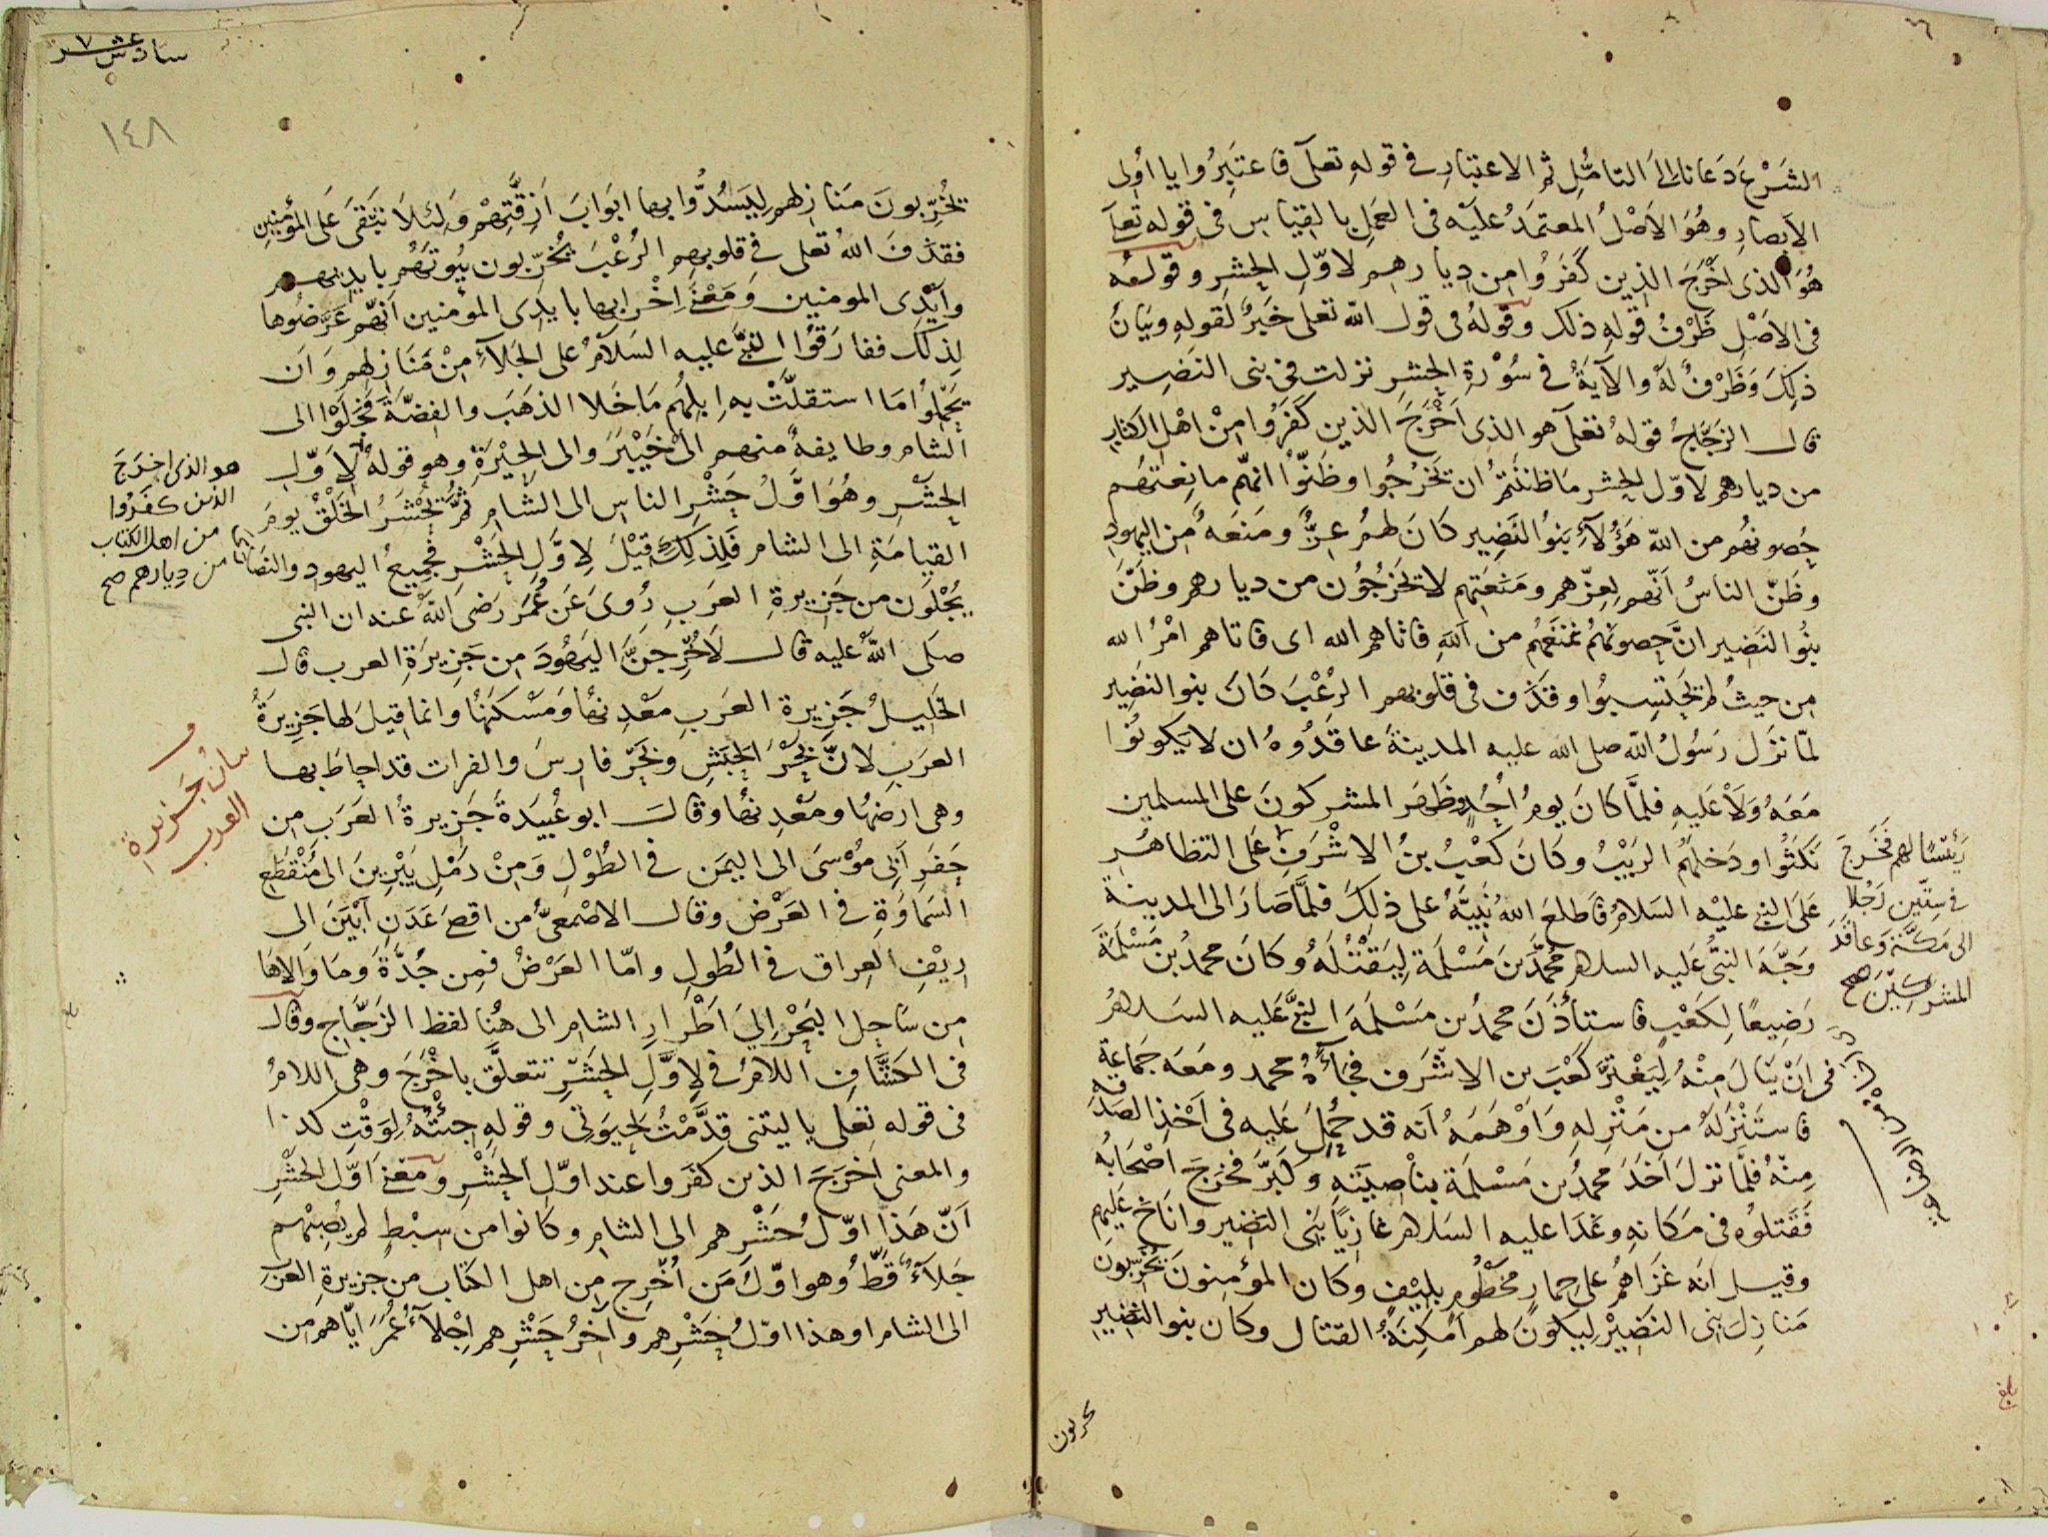 الشَرْع دَعانا الى التامُّلِ ثم الاعتبارِ في قوله تعلى فاعتَبِرُوا يا اُولى
الابصارِ وهُوَ الاَصْلُ المعتمَدُ عليْه فى العمل بالقِياس فى قوله تعلى
هُوَ الذى اخْرَجَ الذين كَفَرُوا من دِيارهم لاوّل الحشر وقوله
فى الاصْلِ ظَرْفُ قوله ذلك وقوله فى قول الله تعلى خَبَرٌ لقوله وبيَانُ
ذلك وَظَرْفٌ لهُ والآيةُ في سُوْرةِ الحشرِ نزلت فى بنى النَضِير
قال الزَجَّاجُ قولهُ تعلى هو الذى اَخْرَجَ الذين كَفَرُوا مِنْ اهْل الكتابِ
من ديارهم لاوّل الحشر مَا ظَننتمُ ان تخرُجُوا وظَنّوا انّهم مانِعتهُم
حُصونُهُم من الله هؤلآءِ بَنوُ النَضِير كَانَ لهمُ عِزٌّ ومنَعَه من اليهود
وظَنّ الناسُ اَنّهم لِعِزّهم ومَنعَتِهم لا يخرُجُون من ديارهم وظَنّ
بنوُ النَضِير انّ حِصونهُم تمنعُهم من الله فاتاهم الله اى فاتاهم امْرُ الله
من حيثُ لم يحتَسِبُوا وقذَف فى قلوبهم الرُعْبَ كَانَ بنو النضِير
لمّا نزَل رَسُولُ الله صلى الله عليه المدينةَ عاقَدُوهُ ان لا يَكونُوا
مَعَهُ ولا عَليهِ فلمَّا كَانَ يومُ اُحُدٍ وظَهَر المشركونَ على المسلمين
نَكَثُوا ودَخلهُم الرَيبُ وكَانَ كَعْبُ بنُ الاشْرَفِ عَلى التظاهُرِ
رَئيْسًا لهم فَخَرَجَ
في سِتّين رَجُلا
الى مَكَّةَ وعاقَدَ
المشركين صح
عَلىَ النبى عليْه السَلامُ فاَطلعَ اللهُ نَبيَّهُ على ذلِكَ فلمَّا صَارَ الى المدينة
وَجَّهَ النبىُّ عَليه السلام محمَّدَ بنَ مَسْلَمة لِيَقتُلَهُ وكَانَ محمدُ بن مَسْلَمَة
رَضِيعًا لِكَعْبٍ فاستأذَنَ محمدُ بن مَسْلمَة النبىَّ عَليه السلام
فى اَنْ يَنالَ مِنْهُ لِيَغْترَّ كَعْبَ بن الاشْرَف فجآءَهُ محمد ومَعَه جَماعة
فاستَنْزَلهُ من مَنْزِلهِ وَاَوْهَمَهُ اَنه قد حُمِلَ عَليه فى اَخْذِ الصَدقه
مِنْهُ فلمّا نزلَ اَخَذَ محمدُ بن مَسْلمَة بناصِيَتهِ وكَبَّرَ فخرَجَ اصْحَابُه
فَقتلوُه فى مَكَانهِ وغَدَا عليه السَلام غازيًا بَنى النَضِير واناخ عليهم
وقيل انه غَزَاهُم على حِمارٍ مخطُومٍ بليْفٍ وكان المؤمِنونَ يُخَرّبُون
مَنازِلَ بنى النَضِيْر لِيكونَ لهم اَمْكِنَةُ القتال وكان بنو النضِيرِ
يخربون
بلغ
سادس عشر
١٤٨
يُخَرِّبونَ مَنازلهم لِيَسُدُّوا بها ابوَابَ اَزِقَّتِهمْ وَلِئلاَ تَبْقَى عَلى المؤمنين
فقذَفَ اللهُ تعلى في قلوبهِم الرُعْبَ يُخرِّبون بيُوتهُم بايديهم
وايْدى المومنين وَمعْنى اِخْرابها بايدى المؤمنين اَنهّم عَرَّضُوها
لِذلكَ ففارَقُوا النبىَّ عليه السَلامُ على الجلآءِ مِنْ مَنَازِلهم وَاَن
يَحمِلوُا مَا استقلَّتْ بهِ اِبلُهُم مَا خَلا الذهَبَ والفِضّة فجَلَوْا الى
الشام وطايفةٌ منهم الى خَيْبَرَ والى الحِيْرَةِ وهو قولهُ لاَوّلِ
الحشْرِ وهُوَ اوَّلُ حَشْرِ الناسِ الى الشام ثمُ يُحْشَرُ الخَلْقُ يومَ
هو الذى اخرَجَ
الذين كفَرُوا
من اهل الكتاب
من دِيارهم صح
القيامَةِ الى الشام فلِذلِكَ قيْلَ لِاوَّلِ الحَشْرِ فجميعُ اليهود والنصَارى
يُجْلَوْن من جَزيرةِ العرَبِ رُوىَ عَن عُمَر رَضى اللهُ عنه ان النبى
صلَى اللهُ عليه قال لاَخُرِجنَّ اليَهُودَ من جَزِيرَةِ العرب قال
الخَلِيلُ جَزيرة العرَبِ مَعْدِنهُا ومَسْكَنهُا وانما قِيلَ لها جَزِيرَةُ
العرَبِ لانَّ بحْرَ الحَبَشِ وبَحْرَ فارِسَ والفرات قد احاطَ بها
بيانُ جَزيرةِ
العرب
وهى ارضُها ومَعْدِنهُا وقال ابو عُبيَدةَ جَزيرةُ العَرَب من
حَفَر اَبى مُوْسىَ الى اليمَن في الطُوْلِ وَمِنْ رَمْلِ يَبْرِينَ الى مُنْقَطَعِ
السَماوَةِ في العَرْض وقال الاصْمعىُّ من اقصَى عَدَنِ اَبْيَنَ الى
رِيْفِ العِراق في الطُولِ وامّا العَرْضُ فمِن جُدَّةَ وَمَا وَالاهَا
من سَاحِل البَحْرِ اِلىَ اَطْرارِ الشام الى هُنا لفظ الزَجَّاجِ وقال
فى الكَشَّافِ اللامُ في لِاوَّلِ الحَشْرِ تتعلَّق باَخْرَجَ وهى اللامُ
فى قوله تعلى يا ليتنى قدَّمْتُ لحيَوتى وقولهِ جِئتُهُ لِوَقْتِ كذا
والمعنى اَخرَجَ الذين كفَروا عند اوّلِ الحشْرِ ومَعْنى اَوّل الحَشْرِ
اَنّ هَذا اوّلُ حَشْرِهم الى الشام وكَانوا من سِبْطٍ لم يُصِبْهم
جَلآءٌ قَطُّ وهو اوّلُ مَن اُخْرِج من اهل الكتاب من جزيرةِ العَرَب
الى الشام او هذا اوّلُ حَشْرِهم واَخرُ حَشْرِهم اِجْلآءُ عُمَرَ ايّاهم من